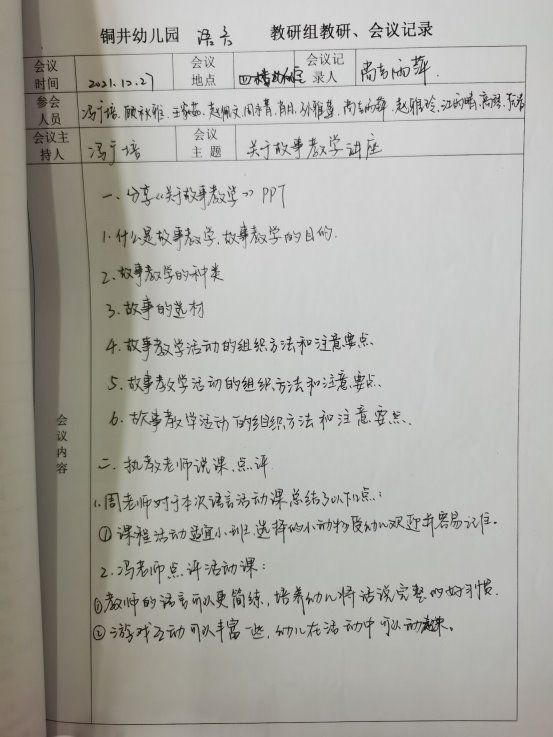 铜井幼儿园 语言 教研组教研、会议记录
会议时间 2021.12.27 会议地点 四楼 会议记录人 尚 萍
参会人员 冯广培、顾秋雅、王家茹、赵佩文、周子青、肖月、孙雅萱、尚 萍、赵雅玲、江雨晴、高
会议主持人 冯广培 会议主题 关于故事教学讲座
会议内容
一、分享《关于故事教学》PPT
1.什么是故事教学、故事教学的目的.
2.故事教学的种类
3.故事的选材
4.故事教学活动的组织方法和注意要点.
5.故事教学活动的组织方法和注意要点.
6.故事教学活动的组织方法和注意要点.
二、执教老师说课、点评
1.周老师对于本次语言活动课总结了以下几点:
①课程活动适宜小班,选择的小动物受幼儿欢迎并容易记住。
2.冯老师点评活动课:
①教师的语言可以更简练,培养幼儿将话说完整的好习惯.
②游戏互动可以丰富一些,幼儿在活动中可以动起来。